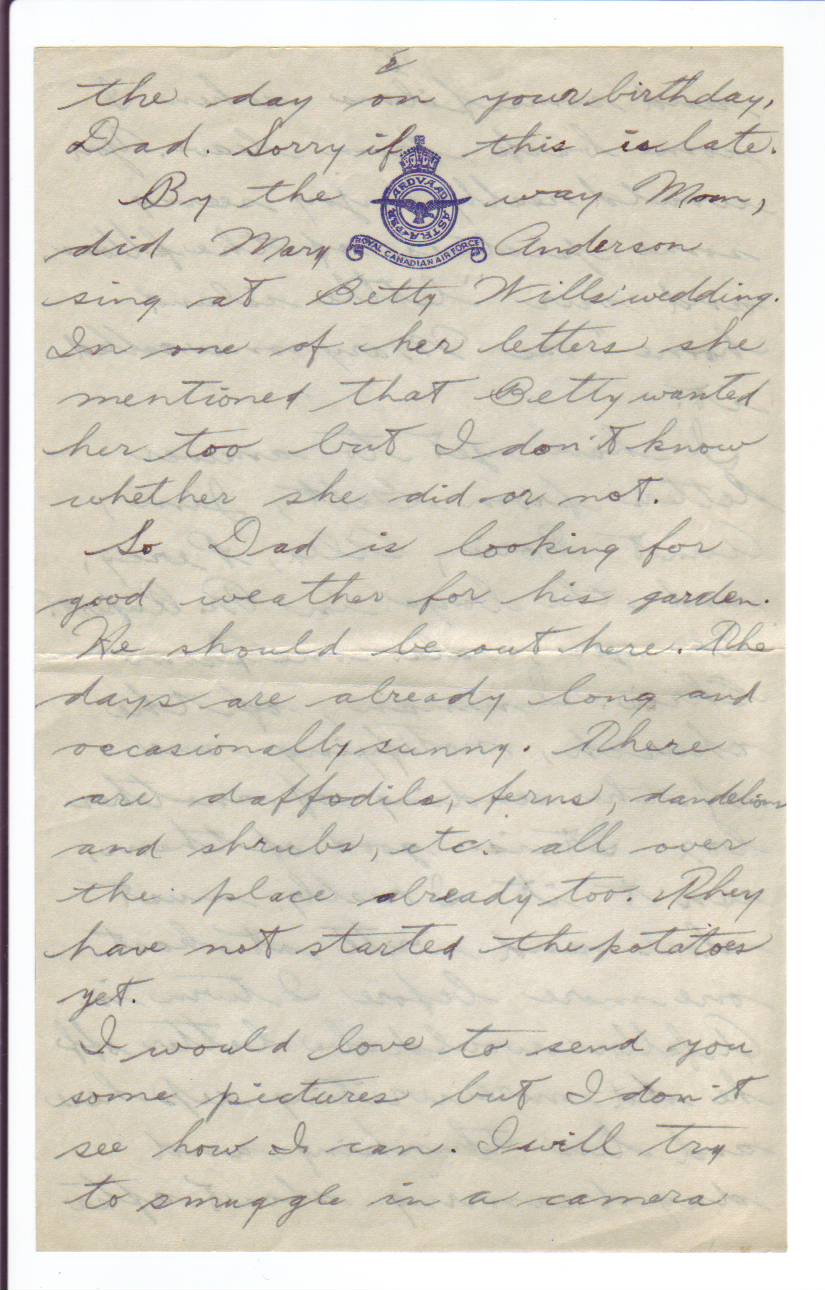 5
the day on your birthday,
Dad. Sorry if this is late.
By the way Mom,
PER ARDVA AD ASTRA
ROYAL CANADIAN AIR FORCE
did Mary Anderson
sing at Betty Wills' wedding.
In one of her letters she
mentioned that Betty wanted
her too but I don't know
whether she did or not.
So Dad is looking for
good weather for his garden.
He should be out here. The
days are already long and
occasionally sunny. There
are daffodils, ferns, dandelions
and shrubs, etc. all over
the place already too. They
have not started the potatoes
yet.
I would love to send you
some pictures but I don't
see how I can. I will try
to smuggle in a camera